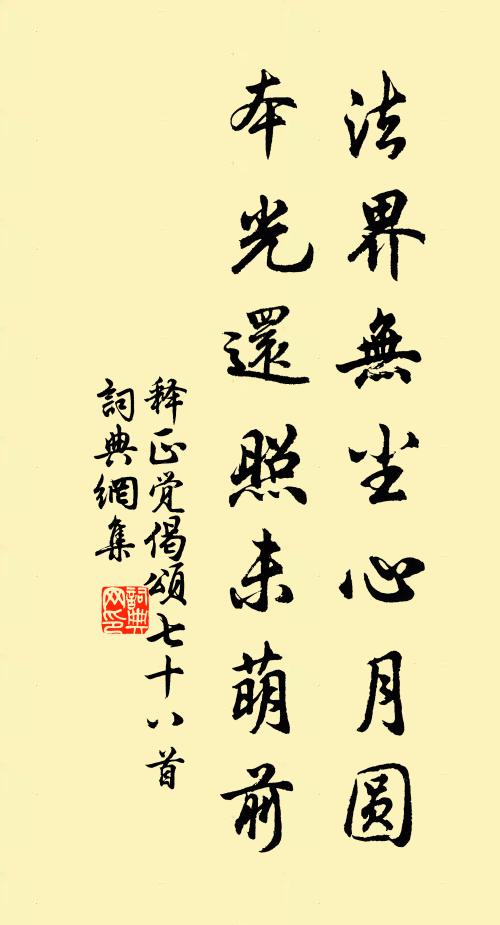 法界無尘心月圆
本光還照未萌前
释正觉偈頌七十八首
詞典網集
詞典
网印